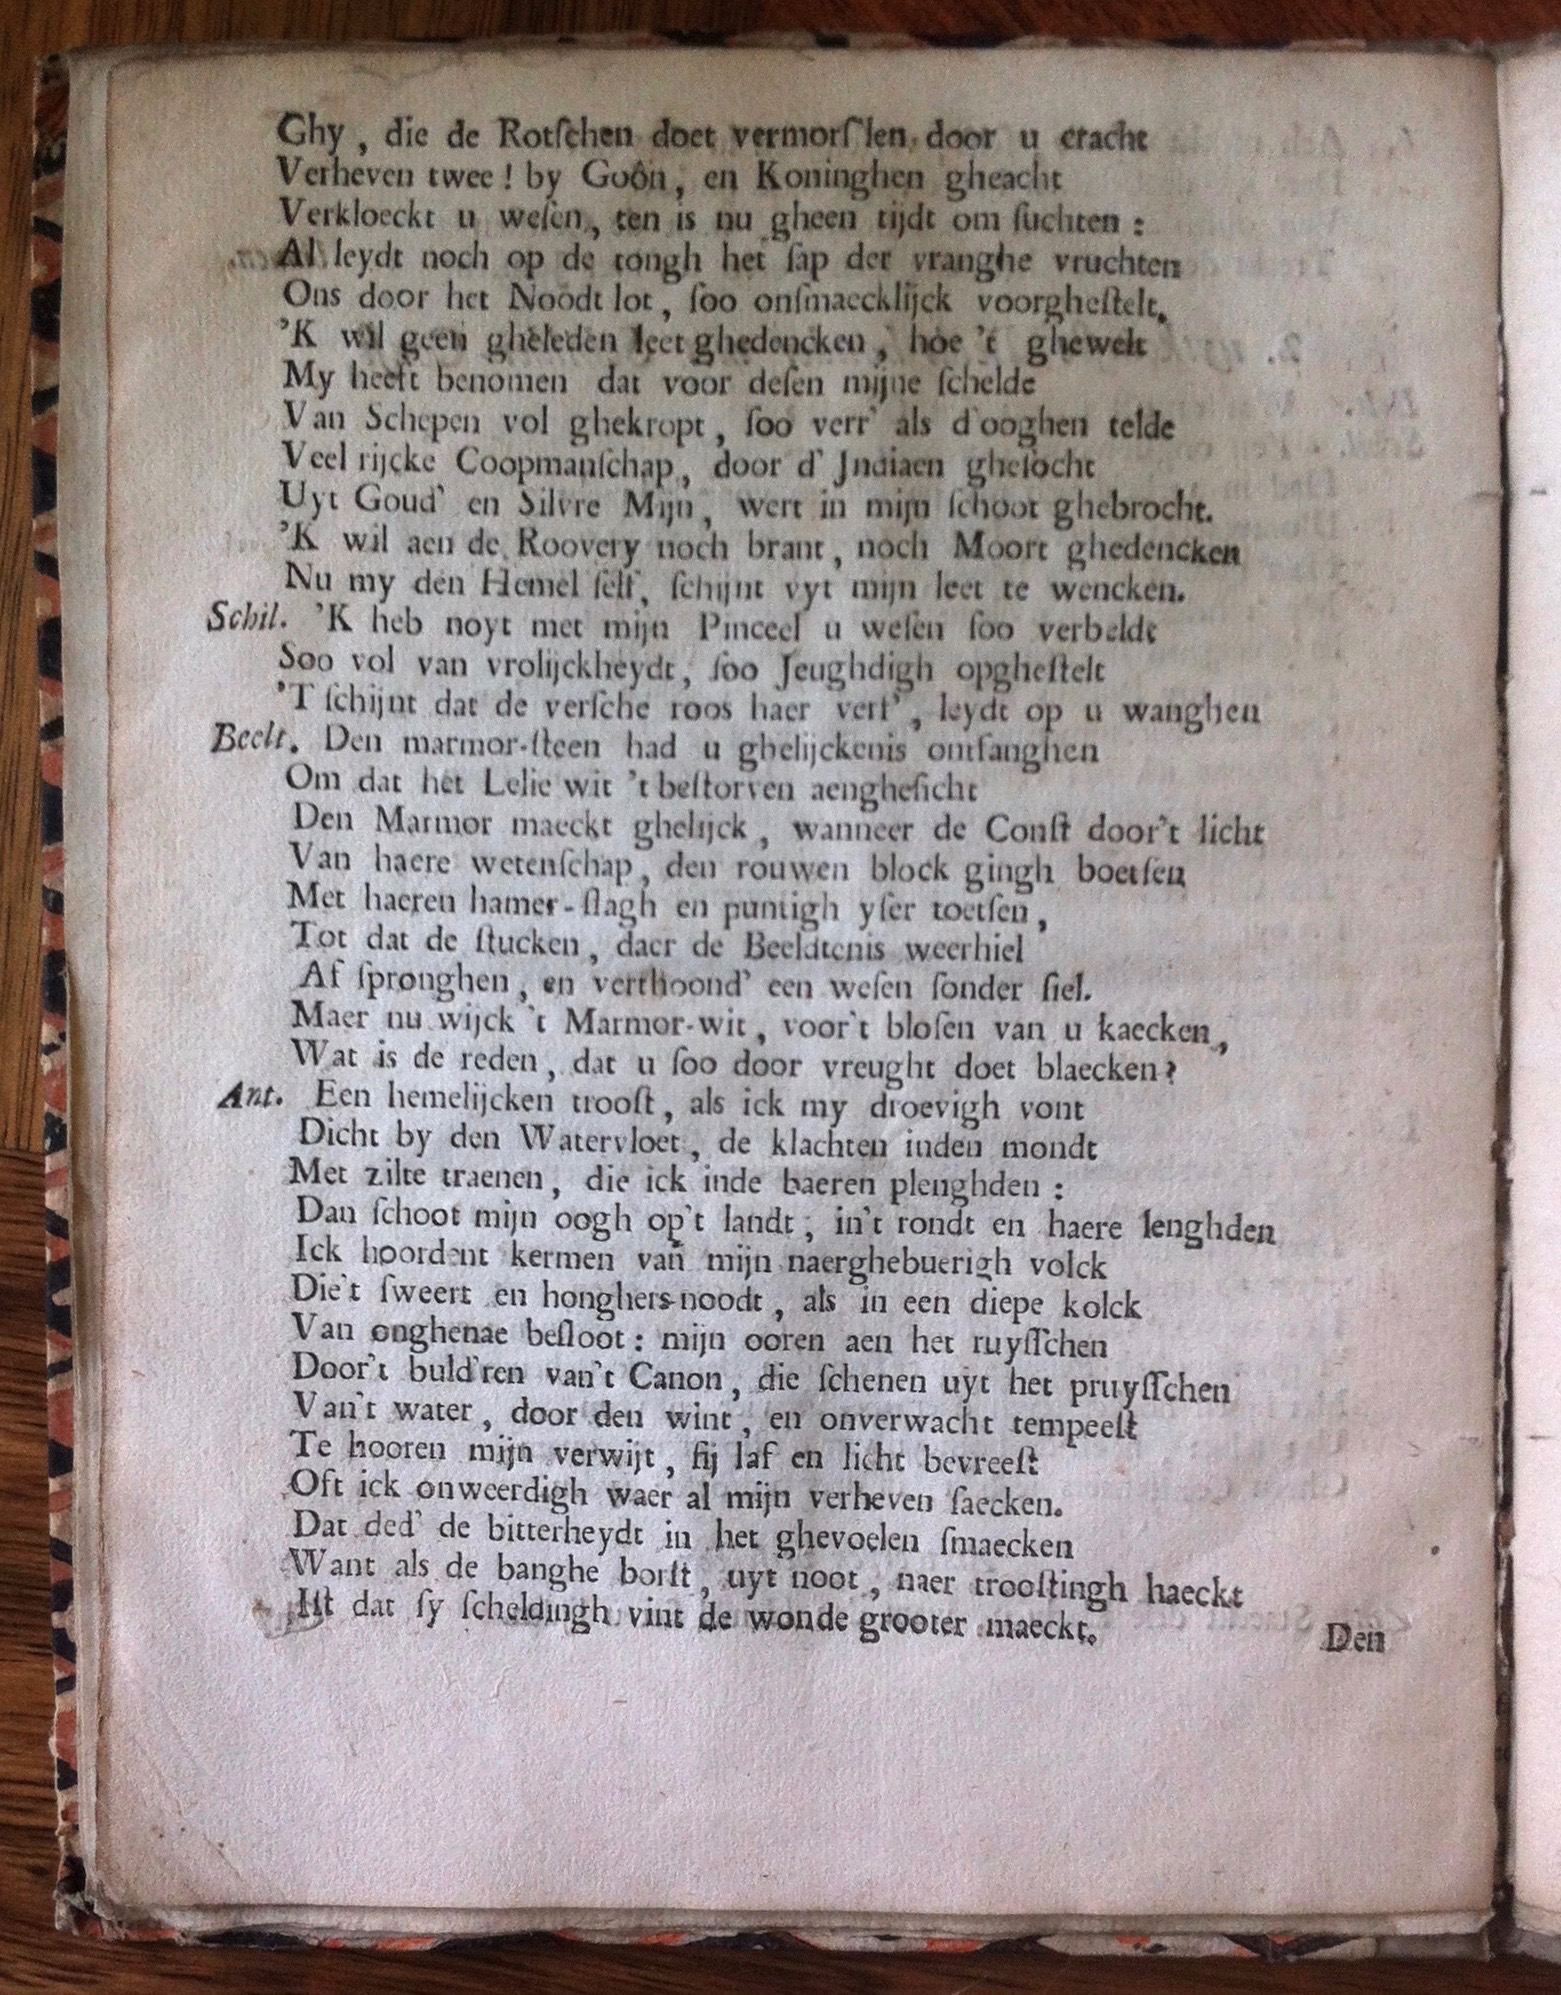 Ghy, die de Rotſchen doet vermorſ'len door u cracht
Verheven twee! by Goôn, en Koninghen gheacht
Verkloeckt u weſen, ten is nu gheen tijdt om ſuchten:
Al leydt noch op de tongh het ſap der vranghe vruchten
Ons door het Noodt lot, ſoo onſmaecklijck voorgheſtelt.
'K wil geen gheleden leet ghedencken, hoe 't ghewelt
My heeft benomen dat voor deſen mijne ſchelde
Van Schepen vol ghekropt, ſoo verr' als d'ooghen telde
Veel rijcke Coopmanſchap, door d'Jndiaen gheſocht
Uyt Goud' en Silvre Mijn, wert in mijn ſchoot ghebrocht.
'K wil aen de Roovery noch brant, noch Moort ghedencken
Nu my den Hemel ſelf, ſchijnt vyt mijn leet te wencken.
Schil. 'K heb noyt met mijn Pinceel u weſen ſoo verbeldt
Soo vol van vrolijckheydt, ſoo Jeughdigh opgheſtelt
'T ſchijnt dat de verſche roos haer verf', leydt op u wanghen
Beelt. Den marmor-ſteen had u ghelijckenis ontfanghen
Om dat het Lelie wit 't beſtorven aengheſicht
Den Marmor maeckt ghelijck, wanneer de Conſt door't licht
Van haere wetenſchap, den rouwen block gingh boetſen
Met haeren hamer-ſlagh en puntigh yſer toetſen,
Tot dat de ſtucken, daer de Beeldtenis weerhiel
Af ſpronghen, en verthoond' een weſen ſonder ſiel.
Maer nu wijck 't Marmor-wit, voor't bloſen van u kaecken,
Wat is de reden, dat u ſoo door vreught doet blaecken?
Ant. Een hemelijcken trooſt, als ick my droevigh vont
Dicht by den Watervloet, de klachten inden mondt
Met zilte traenen, die ick inde baeren plenghden:
Dan ſchoot mijn oogh op't landt, in't rondt en haere lenghden
Ick hoordent kermen van mijn naerghebuerigh volck
Die't ſweert en honghers-noodt, als in een diepe kolck
Van onghenae beſloot: mijn ooren aen het ruyſſchen
Door't buld'ren van't Canon, die ſchenen uyt het pruyſſchen
Van't water, door den wint, en onverwacht tempeeſt
Te hooren mijn verwijt, ſij laf en licht bevreeſt
Oft ick onweerdigh waer al mijn verheven ſaecken.
Dat ded' de bitterheydt in het ghevoelen ſmaecken
Want als de banghe borſt, uyt noot, naer trooſtingh haeckt
Iſt dat ſy ſcheldingh vint de wonde grooter maeckt.
Den